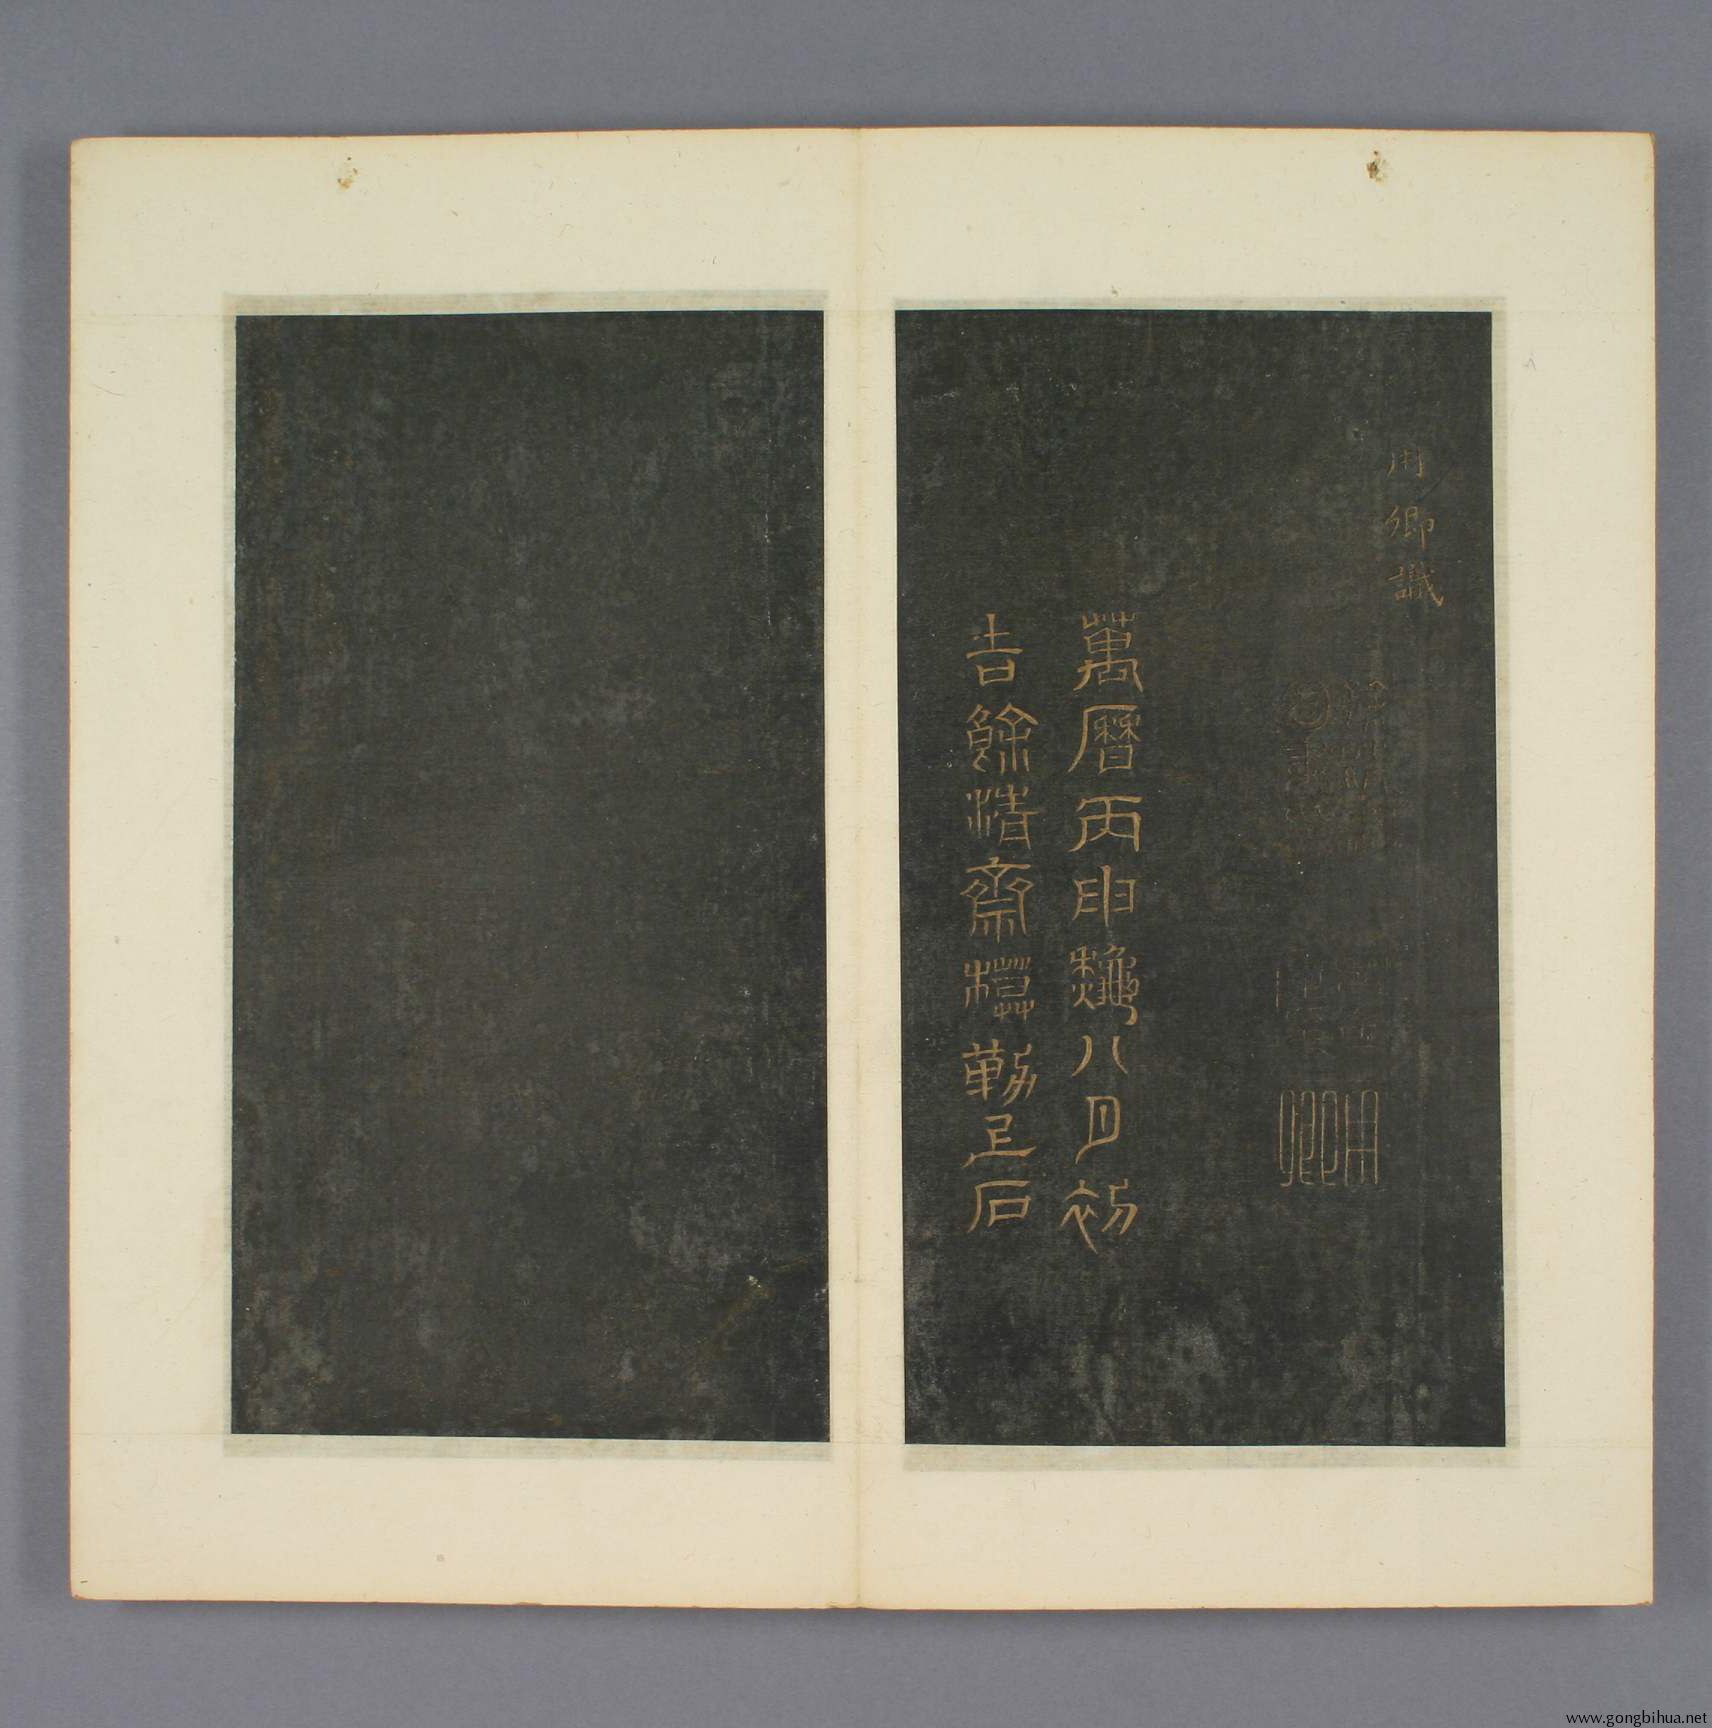 用卿識
用卿
萬曆丙申龝八月初
吉餘清齋摹勒上石
www.gongbihua.net